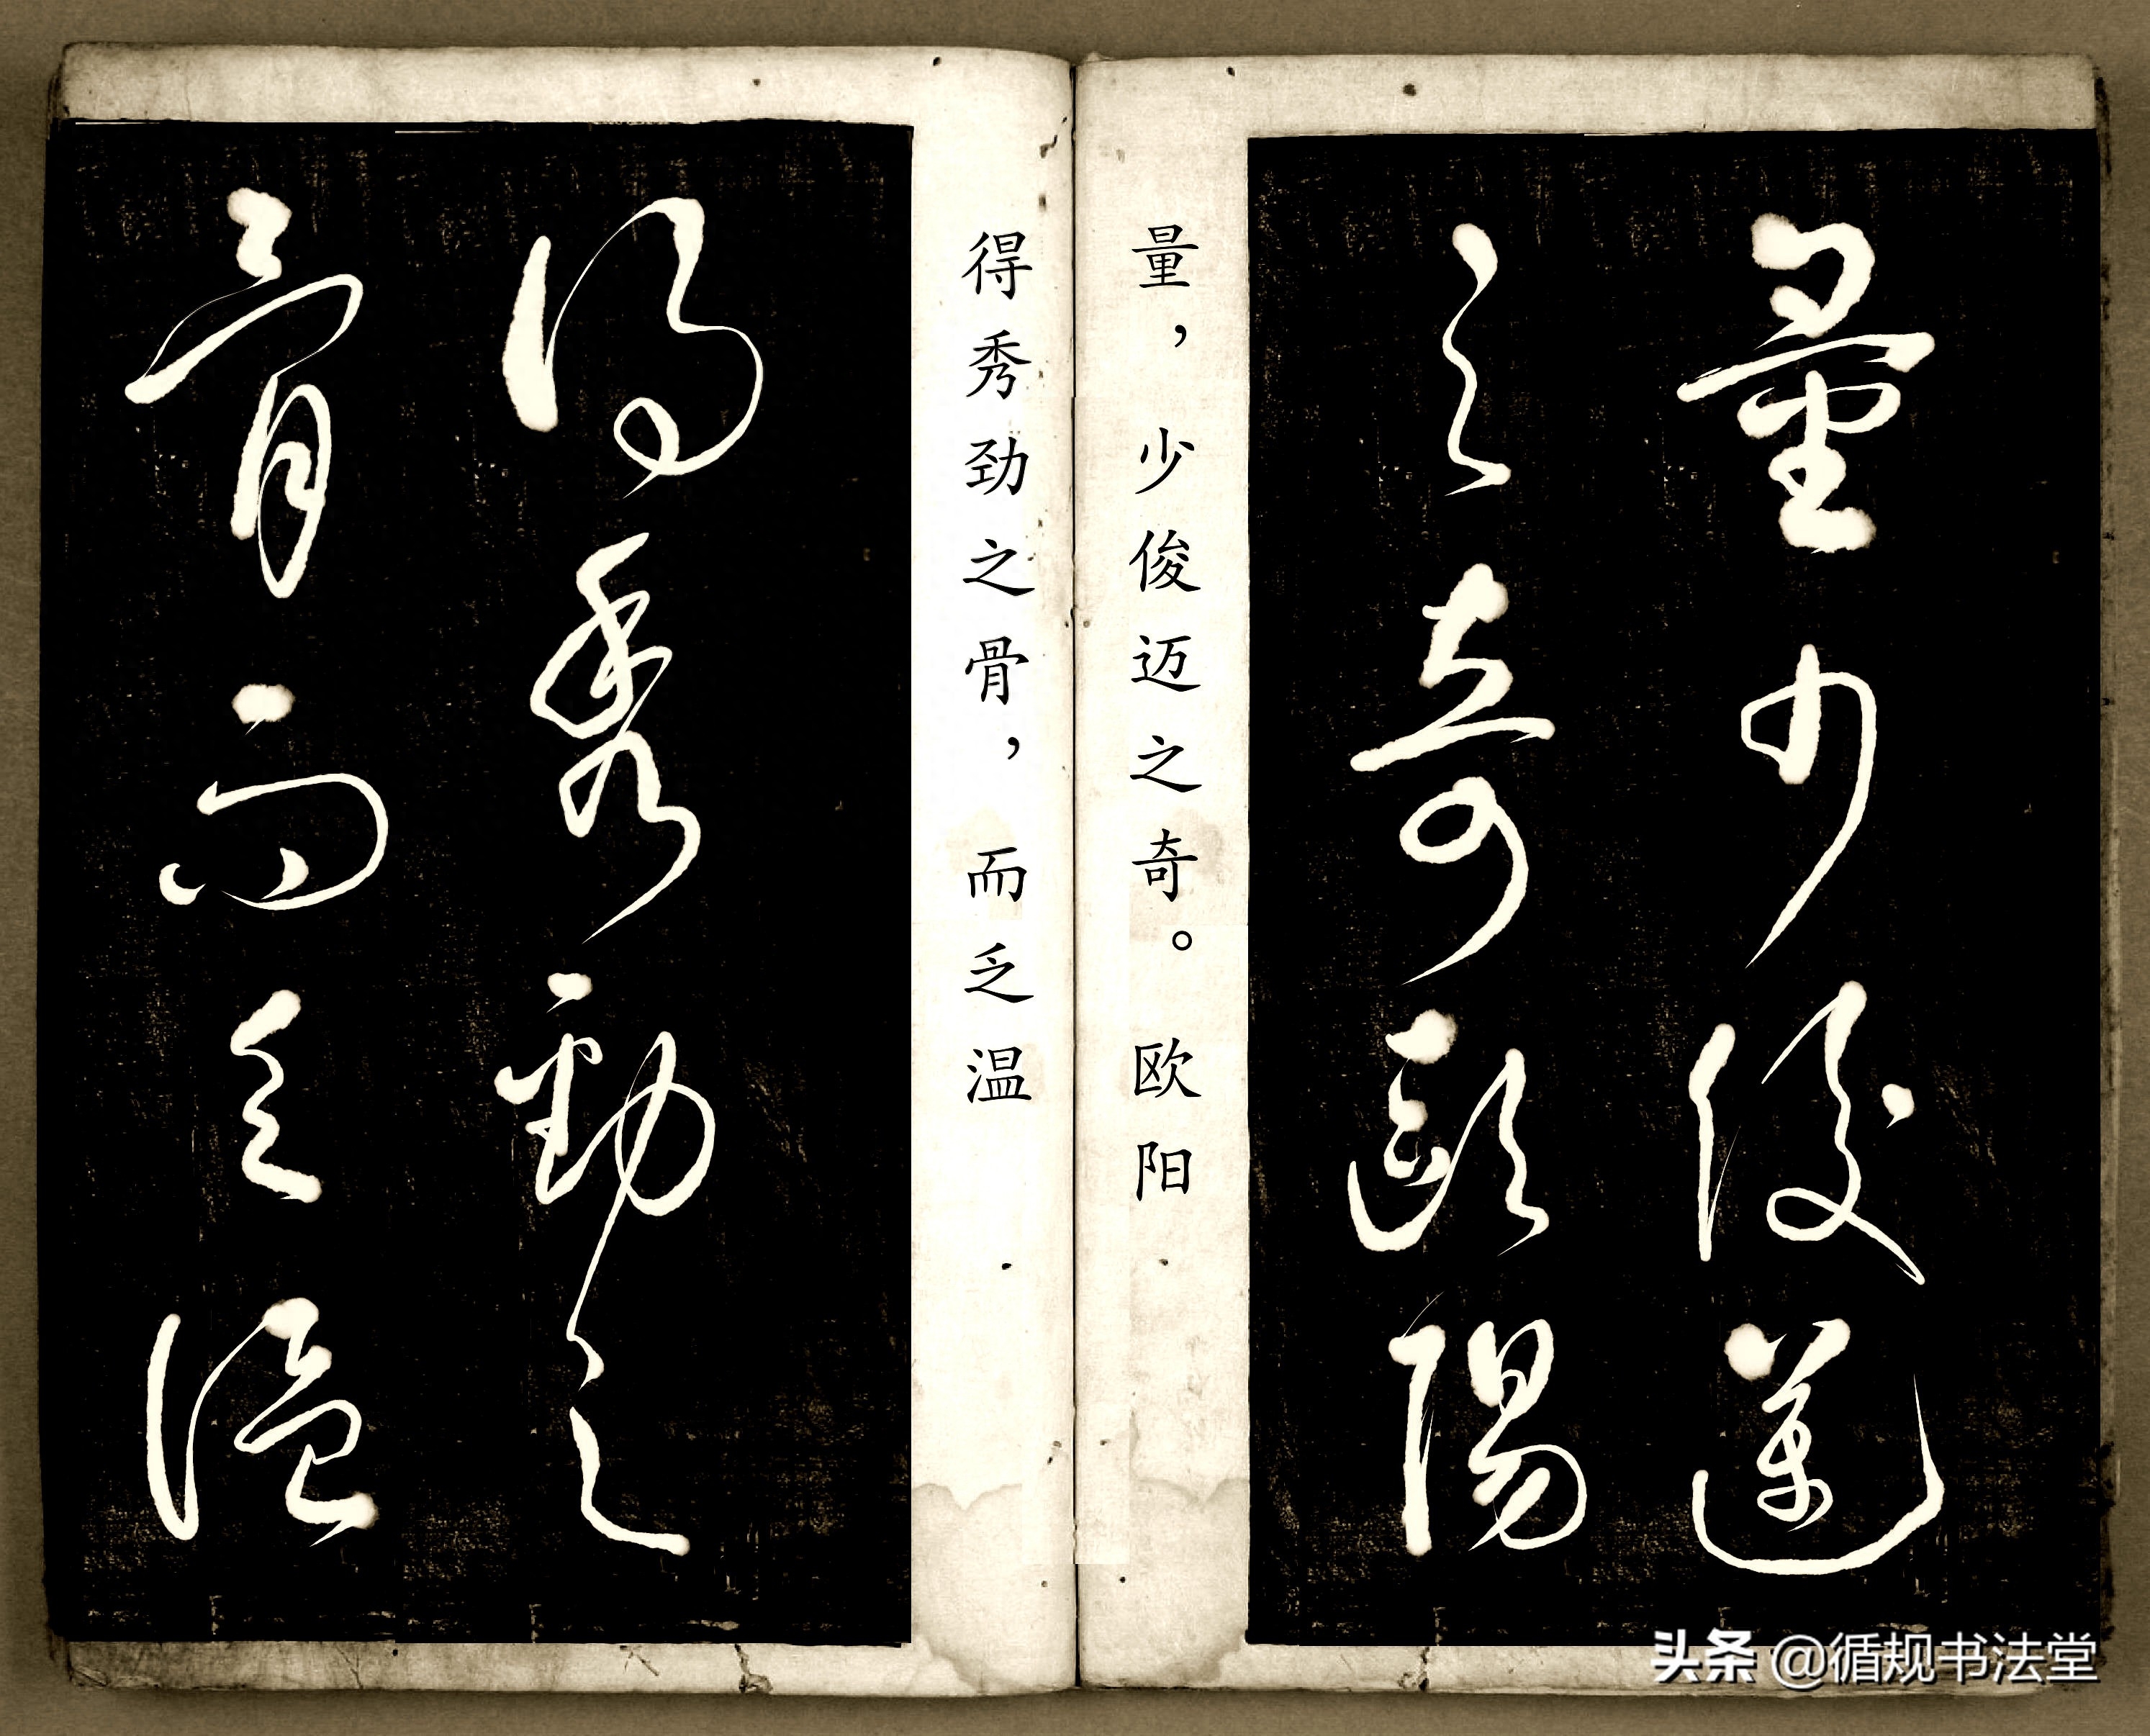 量少俊邁
之奇歐陽
量，少俊迈之奇。欧阳
得秀劲之骨，而乏温
得秀勁之
骨而乏温
头条 @循规书法堂